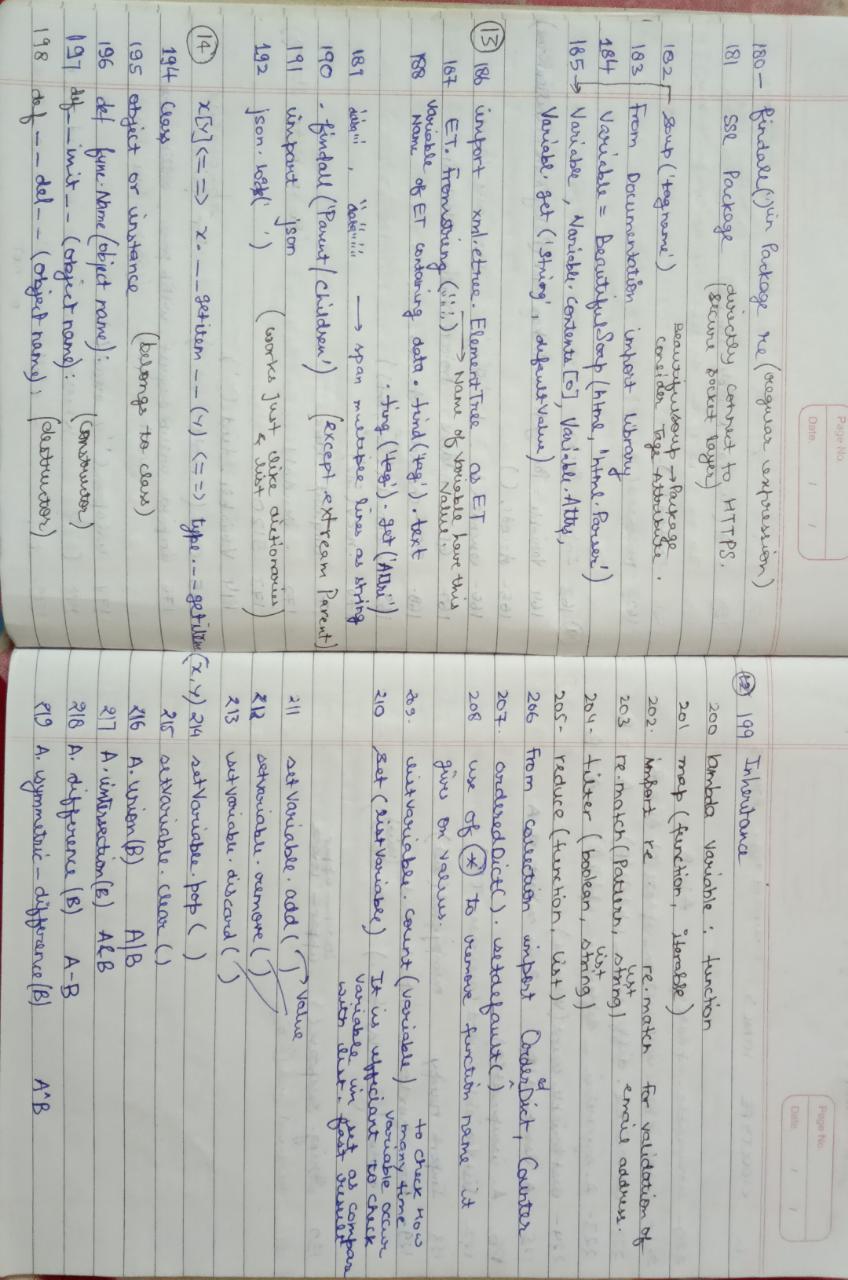 Page No.
Date
180 - findall('') in Package re (regular expression)
181 SSL Package directly connect to HTTPS.
(secure socket layer)
182 soup('tag name') Beautifulsoup → Package
consider Tags Attribute.
183 From Documentation import library
184 Variable = BeautifulSoup(html, "html.Parser")
185 → Variable, Variable.contents[0], Variable.Attrs,
Variable.get('String', default value)
(13) 186 import xml.etree.ElementTree as ET
187 ET.fromstring('''''') → Name of Variable have this
Value.
188 Variable of ET containing data.find('tag').text
Name .find('tag').get('Attri')
189 '''data''', """data""" → span multiple lines as string
190 .findall('Parent/children') [except extream Parent]
191 import json
192 json.loads( ) (works just like dictionaries
& list)
(14) x[y] <==> x.__getitem__(y) <==> type.__getitem(x,y)
194 class
195 object or instance (belongs to class)
196 def func.Name(object name):
197 def __init__(object name): (constructor)
198 def __del__(object name): (destructor)
Page No.
Date
199 Inheritance
200 lambda variable : function
201 map(function, iterable)
202. import re re.match for validation of
203 re.match(Pattern, string) list email address.
204 - filter(boolean, string) list
205 - reduce(function, list)
206 from collection import OrderedDict, Counter
207. orderedDict().setdefault()
208 use of (*) to remove function name it
gives on values.
209. listvariable.count(variable) to check How
many time
variable occur
210 Set(listvariable) It is efficiant to check
variable in set as compare
with list. fast result
211 setVariable.add( ) → value
212 setvariable.remove( )
213 setvariable.discard( )
214 setVariable.pop( )
215 setVariable.clear( )
216 A.union(B) A|B
217 A.intersection(B) A&B
218 A.difference(B) A-B
219 A.symmetric-difference(B) A^B